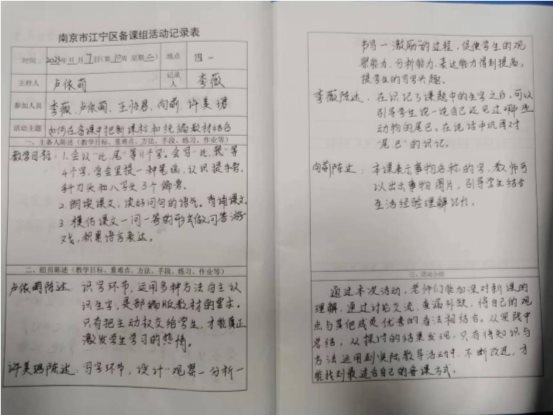 南京市江宁区备课组活动记录表
时间 2023年11月7日(第10周 星期二) 地点 四一
主持人 卢依萌 记录人 李薇
参加人员 李薇 卢依萌 王 向莉 许美
活动主题 如何在备课中把新课标和统编教材结合
一、主备人陈述(教学目标、重难点、方法、手段、练习、作业等)
教学目标:1.会认“比、尾”等11个字,会写“比、长”等
4个字,学会竖提一种笔画,认识提手旁、
和八字头3个偏旁。
2.朗读课文,读好问句的语气。背诵课文。
3.模仿课文一问一答的形式做问答游
戏,积累语言表达。
二、组员陈述(教学目标、重难点、方法、手段、练习、作业等)
卢依萌陈述: 识字环节,运用多种方法自主认
识生字,是部编版教材的要求。
只有把主动权交给学生,才能真正
激发学生学习的热情。
许美 陈述:写字环节,设计“观察—分析—
书写—激励”的过程,促使学生的观
察能力、分析能力、表达能力得到提高,
提学生的写字兴趣。
李薇陈述: 在识记了课题中的生字之后,可以
引导学生说一说自己还见过哪些
动物的尾巴,在说话中巩固对
“尾巴”的识记。
向莉陈述: 本课表示事物名称的字,教师可
以出示事物图片,引导学生结合
生活经验理解识记。
三、活动小结
通过本次活动,老师们更加深对新课的
理解,通过讨论交流,查漏补缺,将自己的观
点与其他成员优秀的看法相结合。从实践中
总结,从探讨的结果发现,只有将知识与
方法运用到实际教学活动中,不断改进,才
能找到最适合自己的备课方式。